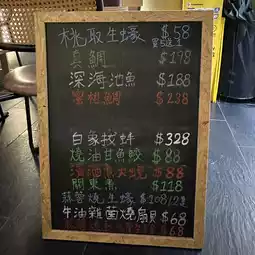 桃取生蠔 $58
買5送1
真鯛 $198
深海池魚 $188
蜜柑鯛 $238
白象拔蚌 $328
燒油甘魚鮫 $88
$88
關東煮 $118
蒜蓉燒生蠔 $108/2隻
牛油雜菌燒扇貝 $68
$68